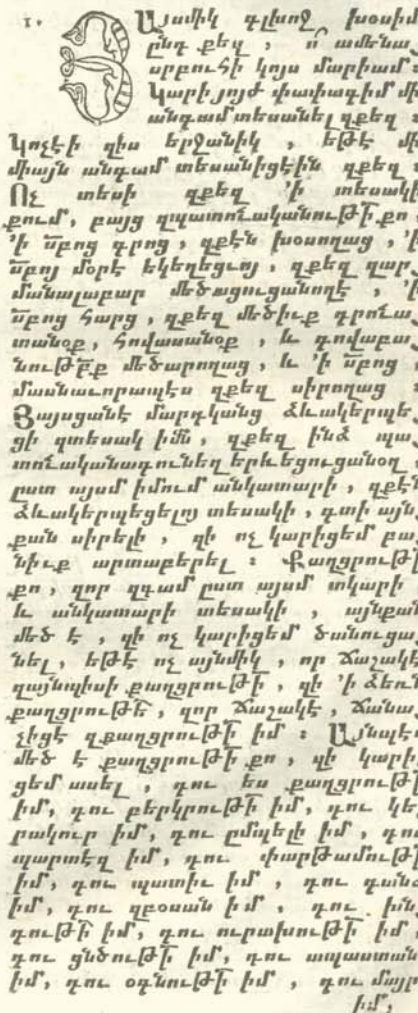 1. Այսմիկ գլխոջ խօսիմ
ընդ քեզ, ո՛ ամենա֊
սրբուհի կոյս մարիամ:
Կարի յոյժ փափագիմ մի
անգամ տեսանել զքեզ:
կոչէի զիս երջանիկ, եթէ մի
միայն անգամ տեսանիցէին զքեզ:
Ոչ տեսի զքեզ 'ի տեսակի
քում, բայց զպատուականութի քո
'ի սբոց գրոց, զքէն խօսողաց, 'ի
սբոյ մօրէ եկեղեցւոյ, զքեզ զար֊
մանալաբար մեծացուցանողէ, 'ի
սբոց հարց, զքեզ մեծիւք գրուա֊
տանօք, հովասանօք, և գովաբա֊
նութբք մեծարողաց, և 'ի սբոց,
մասնաւորապէս զքեզ սիրողաց
Յայսցանէ մարդկանց ձևակերպե֊
ցի զտեսակ իմն, զքեզ ինձ պա֊
տուականագունեղ երևեցուցանօղ,
ըստ այսմ իմում անկատարի, զքէն
ձևակերպեցելոյ տեսակի, գտի այն֊
քան սիրելի, զի ոչ կարիցեմ բա֊
նիւք արտաբերել: Քաղցրութի
քո, զոր զգամ ըստ այսմ տկարի
և անկատարի տեսակի, այնքան
մեծ է, զի ոչ կարիցեմ ծանուցա֊
նել, եթէ ոչ այնմիկ, որ ճաշակէ
զայնպիսի քաղցրութի, զի 'ի ձեռն
քաղցրութե, զոր ճաշակէ, ճանա֊
չիցէ զքաղցրութի իմ: Այնպէս
մեծ է քաղցրութի քո, զի կարի֊
ցեմ ասել, դու ես քաղցրութի
իմ, դու բերկրութի իմ, դու կե֊
րակուր իմ, դու ըմպելի իմ, դու
պարտէզ իմ, դու փարթամութի
իմ, դու պատիւ իմ, դու գանձ
իմ, դու զբօսան իմ, դու խն֊
դութի իմ, դու ուրախութի իմ,
դու ցնծութի իմ, դու ապաստան
իմ, դու օգնութի իմ, դու մայր
իմ,